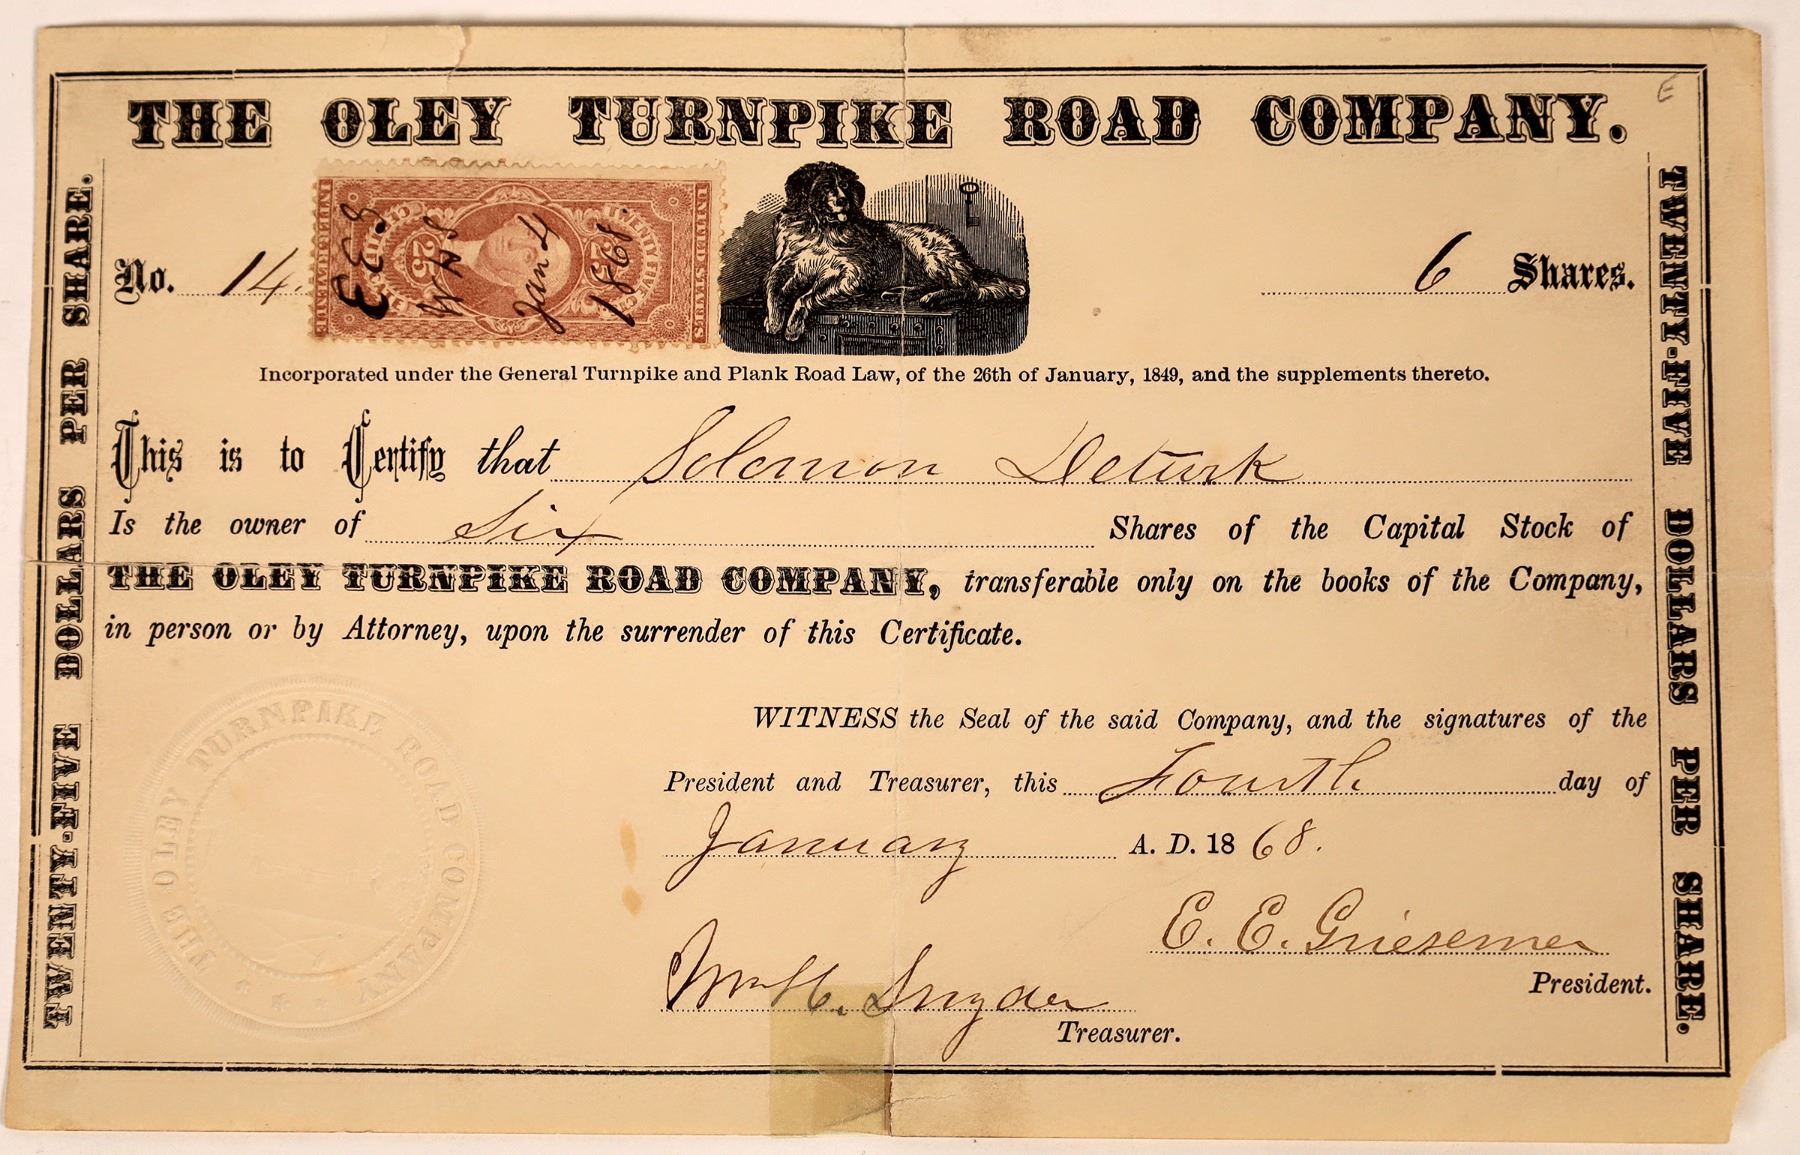 THE OLEY TURNPIKE ROAD COMPANY.
E
TWENTY-FIVE DOLLARS PER SHARE.
TWENTY-FIVE DOLLARS PER SHARE.
No. 14.
UNITED STATES
25 25
E E G
W H S
Jan 4
1868.
6 Shares.
Incorporated under the General Turnpike and Plank Road Law, of the 26th of January, 1849, and the supplements thereto.
This is to Certify that Solomon Deturk
Is the owner of Six Shares of the Capital Stock of
THE OLEY TURNPIKE ROAD COMPANY, transferable only on the books of the Company,
in person or by Attorney, upon the surrender of this Certificate.
THE OLEY TURNPIKE ROAD COMPANY
WITNESS the Seal of the said Company, and the signatures of the
President and Treasurer, this Fourth day of
January A. D. 1868.
E. E. Griesemer
President.
Wm H. Snyder
Treasurer.